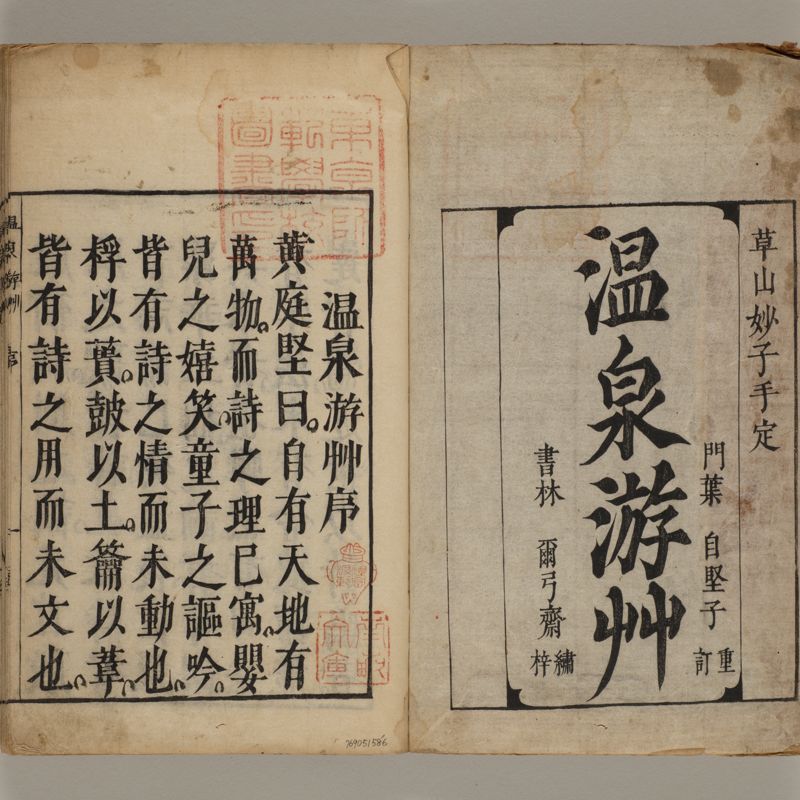 草山妙子手定
門葉 自堅子 重訂
温泉游艸
書林 爾弓齋 繡梓
温泉游艸序
黄庭堅曰。自有天地有
萬物。而詩之理已寓。嬰
兒之嬉笑。童子之謳吟。
皆有詩之情而未動也。
桴以蕢。皷以土。籥以葦。
皆有詩之用而未文也。
温泉游艸 序
769051586